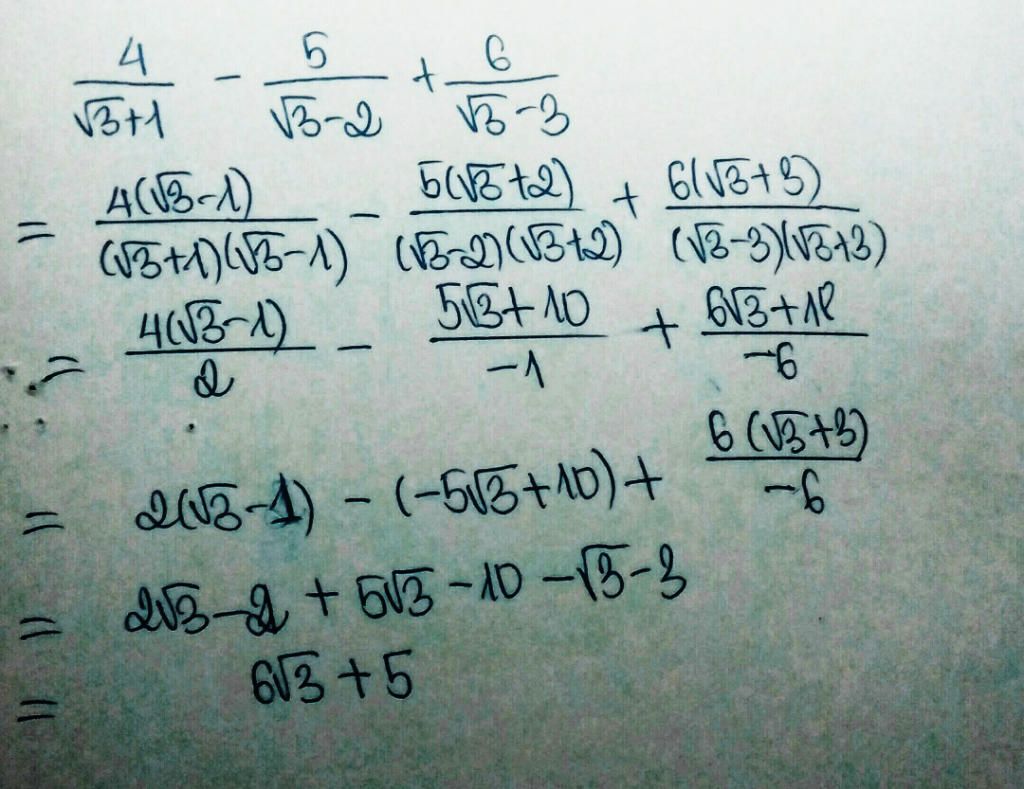 4/(√3+1) - 5/(√3-2) + 6/(√3-3)
= 4(√3-1)/((√3+1)(√3-1)) - 5(√3+2)/((√3-2)(√3+2)) + 6(√3+3)/((√3-3)(√3+3))
= 4(√3-1)/2 - (5√3+10)/-1 + (6√3+18)/-6
= 2(√3-1) - (-5√3+10) + 6(√3+3)/-6
= 2√3-2 + 5√3-10 -√3-3
= 6√3+5